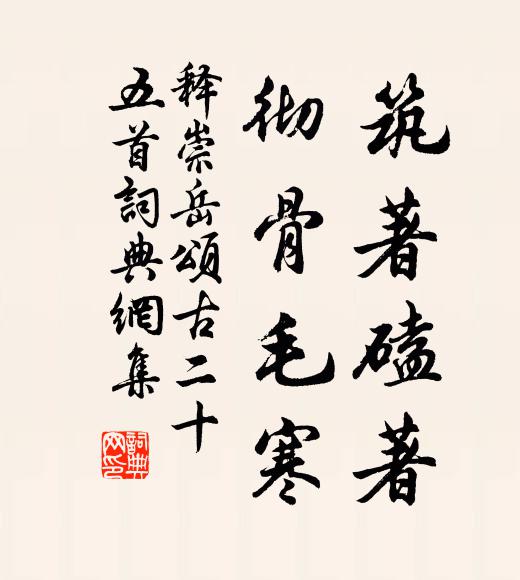 筑著磕著
彻骨毛寒
释崇岳颂古二十
五首詞典網集
詞典网印